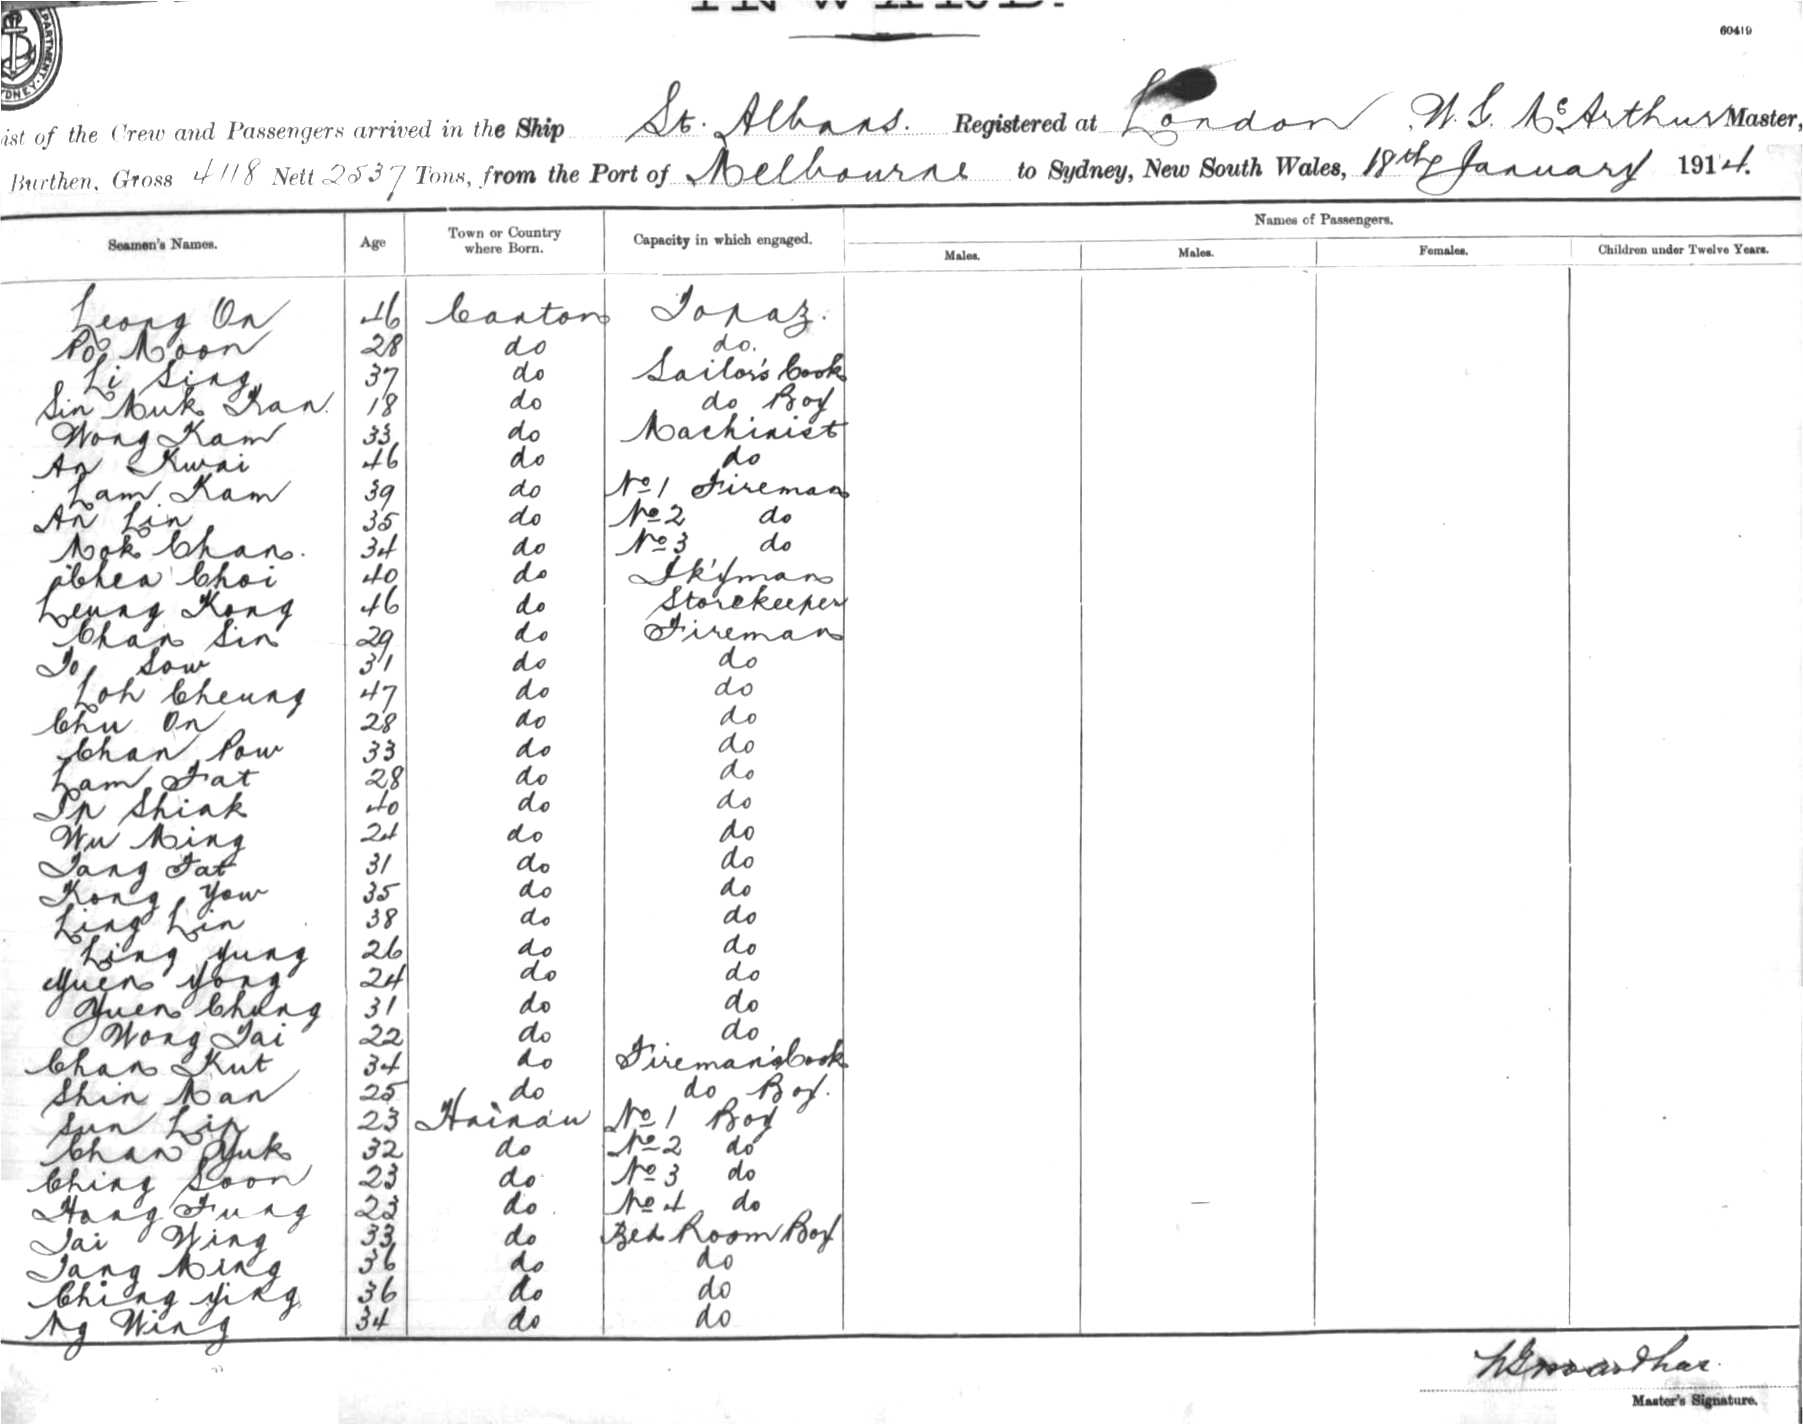 INWARD.
60419
PARTMENT. YDNEY.
ist of the Crew and Passengers arrived in the Ship St. Albans. Registered at London W. G. McArthur Master,
Burthen, Gross 4118 Nett 2537 Tons, from the Port of Melbourne to Sydney, New South Wales, 18th January 1914.
Names of Passengers.
Seamen's Names. Age Town or Country where Born. Capacity in which engaged. Males. Males. Females. Children under Twelve Years.
Leong On 46 Canton Topaz.
Po Moon 28 do do.
Li Sing 37 do Sailor's Cook
Sin Muk Kan. 18 do do Boy
Wong Kam 33 do Machinist
Ah Kwai 46 do do
Lam Kam 39 do No 1 Fireman
Ah Lin 35 do No 2 do
Mok Chan. 34 do No 3 do
Chea Choi 40 do
Leung Kong 46 do Storekeeper
Chan Sin 29 do Fireman
To Sow 31 do do
Loh Cheung 47 do do
Chu On 28 do do
Chan Pow 33 do do
Lam Fat 28 do do
Ip Shiak 40 do do
Wu Ming 24 do do
Tang Fat 31 do do
Kong Yow 35 do do
Ling Lin 38 do do
Ling Yung 26 do do
Yuen Yong 24 do do
Yuen Chung 31 do do
Wong Tai 22 do do
Chan Kut 34 do Fireman's Cook
Shin Man 25 do do Boy.
Sun Lip 23 Hainau No 1 Boy
Chan Yuk 32 do No 2 do
Ching Soon 23 do No 3 do
Hong Fung 23 do No 4 do
Tai Wing 33 do Bed Room Boy
Tang Ming 36 do do
Ching Ying 36 do do
Ng Wing 34 do do
Master's Signature.